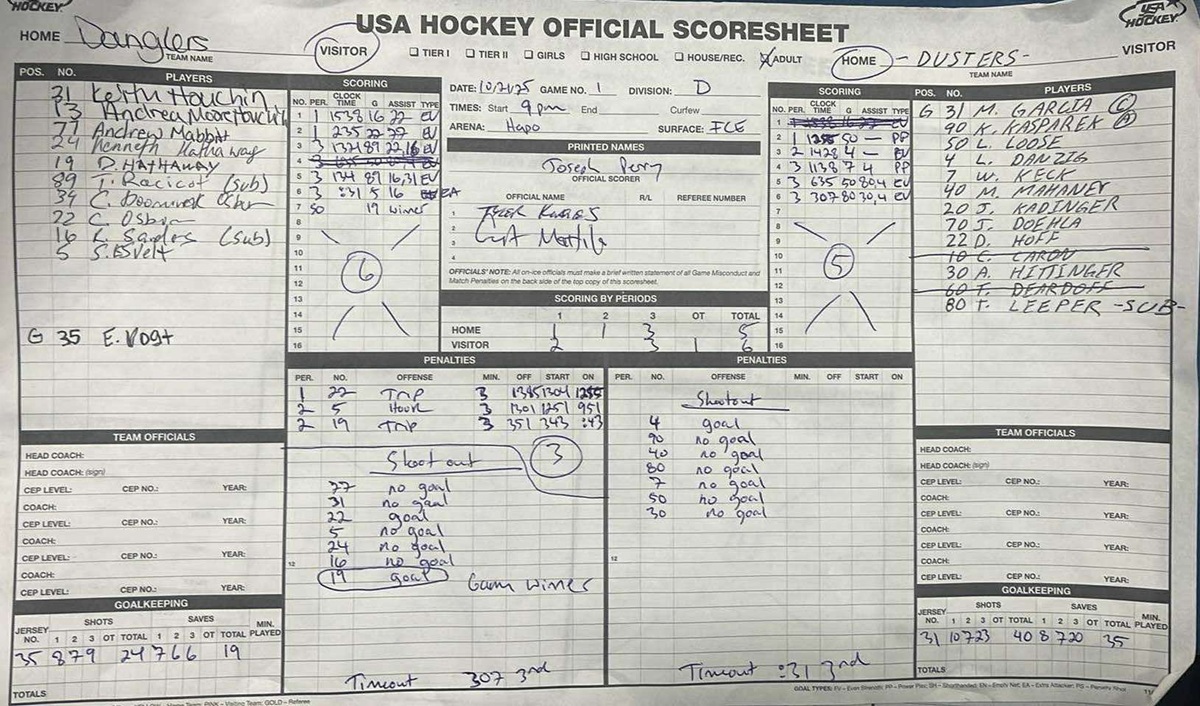 HOCKEY
USA HOCKEY
USA HOCKEY OFFICIAL SCORESHEET
HOME Danglers
TEAM NAME
VISITOR
☐ TIER I ☐ TIER II ☐ GIRLS ☐ HIGH SCHOOL ☐ HOUSE/REC. ☒ ADULT
HOME - DUSTERS - VISITOR
TEAM NAME
POS. NO. PLAYERS
31 Keith Houchin
13 Andrea Moore Houchin
77 Andrew Mabbitt
24 Kenneth Hathaway
19 D. HATHAWAY
89 T. Racicot (sub)
34 C. Doominck
22 C. Osburn
16 L. Sandos (sub)
5 S. Esvelt
G 35 E. Vogt
SCORING
NO. PER. CLOCK TIME G ASSIST TYPE
1 1 1538 16 22 EV
2 1 235 22 77 EV
3 3 1321 89 22,16 EV
4 3 635 50 80,4 EV
5 3 134 89 16,31 EV
6 3 :31 5 16 EA
7 SO 19 winner
8
9
10
11
12
13
14
15
16
6
DATE: 10/21/25 GAME NO. 1 DIVISION: D
TIMES: Start 9pm End Curfew
ARENA: Hapo SURFACE: ICE
PRINTED NAMES
Joseph Perry
OFFICIAL SCORER
OFFICIAL NAME R/L REFEREE NUMBER
1
2
3
4
OFFICIALS' NOTE: All on-ice officials must make a brief written statement of all Game Misconduct and
Match Penalties on the back side of the top copy of this scoresheet.
SCORING BY PERIODS
1 2 3 OT TOTAL
HOME 1 1 3 5
VISITOR 2 3 1 6
SCORING
NO. PER. CLOCK TIME G ASSIST TYPE
1 1 1538 16 22 EV
2 1 1255 50 — PP
3 2 1428 4 — EV
4 3 1138 7 4 PP
5 3 635 50 80,4 EV
6 3 307 80 30,4 EV
7
8
9
10
11
12
13
14
15
16
5
POS. NO. PLAYERS
G 31 M. GARCIA C
90 K. KASPAREK A
50 L. LOOSE
4 L. DANZIG
7 W. KECK
40 M. MAHANEY
20 J. KADINGER
70 J. DOEHLA
22 D. HOFF
10 C. CARON
30 A. HITTINGER
60 T. DEARDOFF
80 T. LEEPER -SUB-
PENALTIES
PER. NO. OFFENSE MIN. OFF START ON
1 22 Trip 3 1385 1304 1255
2 5 Hook 3 1301 1251 951
2 19 Trip 3 351 343 :43
3
Shootout
77 no goal
31 no goal
22 goal
5 no goal
24 no goal
12 16 no goal
19 goal Game Winner
Timeout 307 3rd
PENALTIES
PER. NO. OFFENSE MIN. OFF START ON
Shootout
4 goal
90 no goal
40 no goal
80 no goal
7 no goal
50 no goal
30 no goal
12
Timeout :31 3rd
TEAM OFFICIALS
HEAD COACH:
HEAD COACH: (sign)
CEP LEVEL: CEP NO.: YEAR:
COACH:
CEP LEVEL: CEP NO.: YEAR:
COACH:
CEP LEVEL: CEP NO.: YEAR:
COACH:
CEP LEVEL: CEP NO.: YEAR:
GOALKEEPING
JERSEY NO. SHOTS 1 2 3 OT TOTAL SAVES 1 2 3 OT TOTAL MIN. PLAYED
35 8 7 9 24 7 6 6 19
TOTALS
TEAM OFFICIALS
HEAD COACH:
HEAD COACH: (sign)
CEP LEVEL: CEP NO.: YEAR:
COACH:
CEP LEVEL: CEP NO.: YEAR:
COACH:
CEP LEVEL: CEP NO.: YEAR:
COACH:
CEP LEVEL: CEP NO.: YEAR:
GOALKEEPING
JERSEY NO. SHOTS 1 2 3 OT TOTAL SAVES 1 2 3 OT TOTAL MIN. PLAYED
31 10 7 23 40 8 7 20 35
TOTALS
GOAL TYPES: EV – Even Strength; PP – Power Play; SH – Shorthanded; EN – Empty Net; EA – Extra Attacker; PS – Penalty Shot